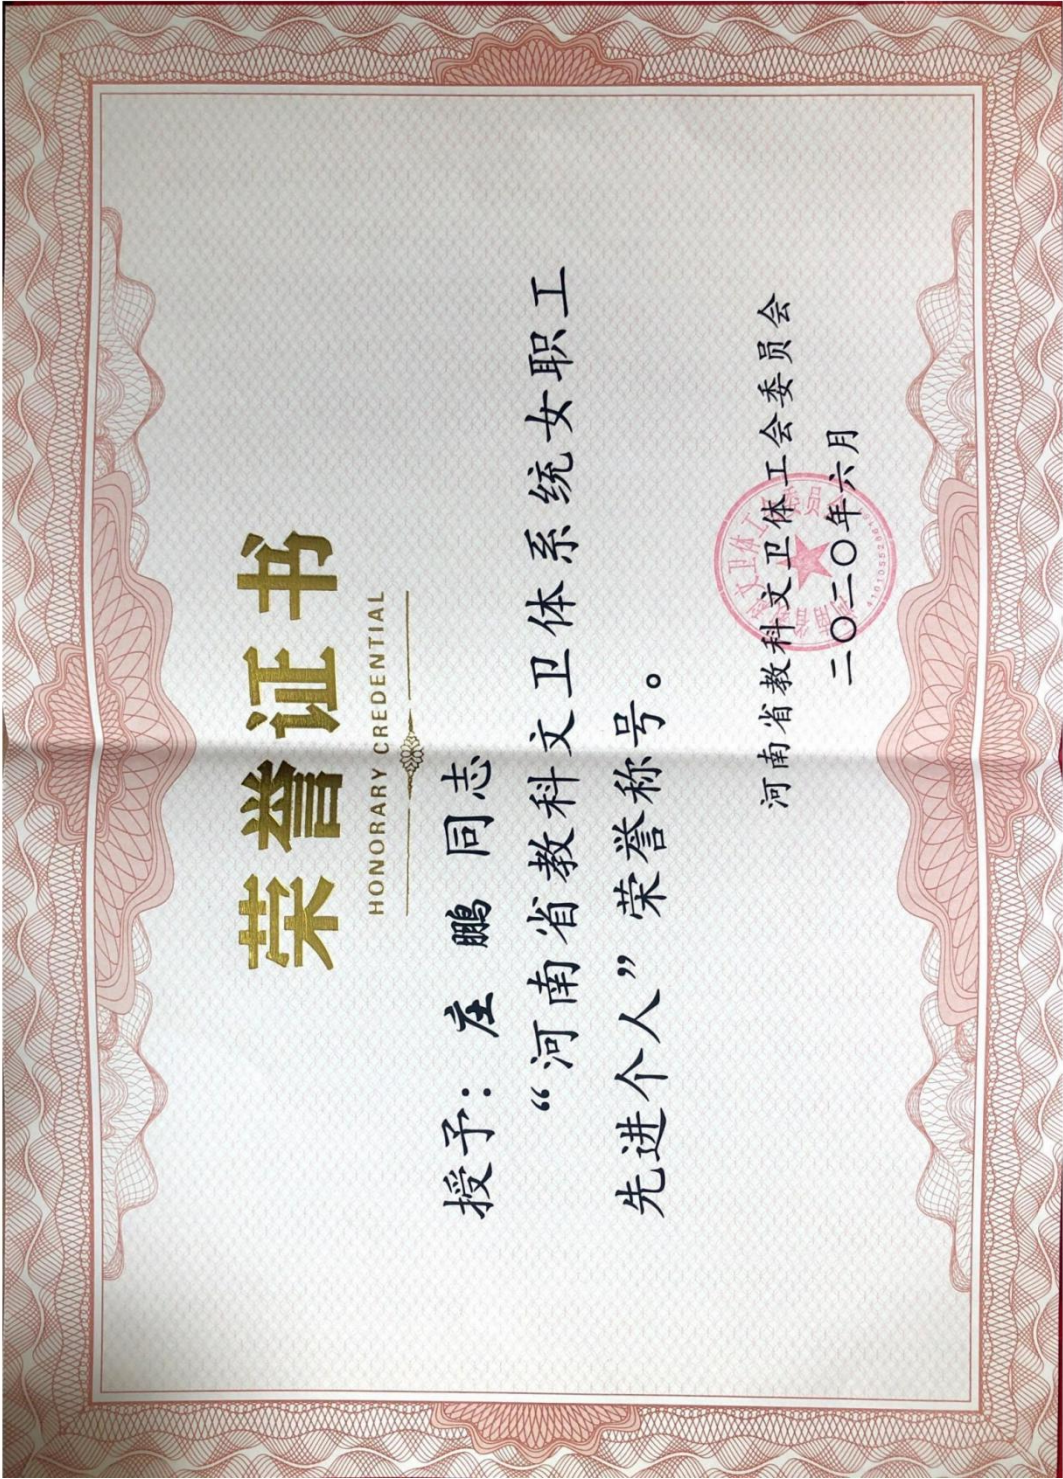 荣誉证书
HONORARY CREDENTIAL
授予：庄 鹏 同志
“河南省教科文卫体系统女职工
先进个人”荣誉称号。
河南省教科文卫体工会委员会
二〇二〇年六月